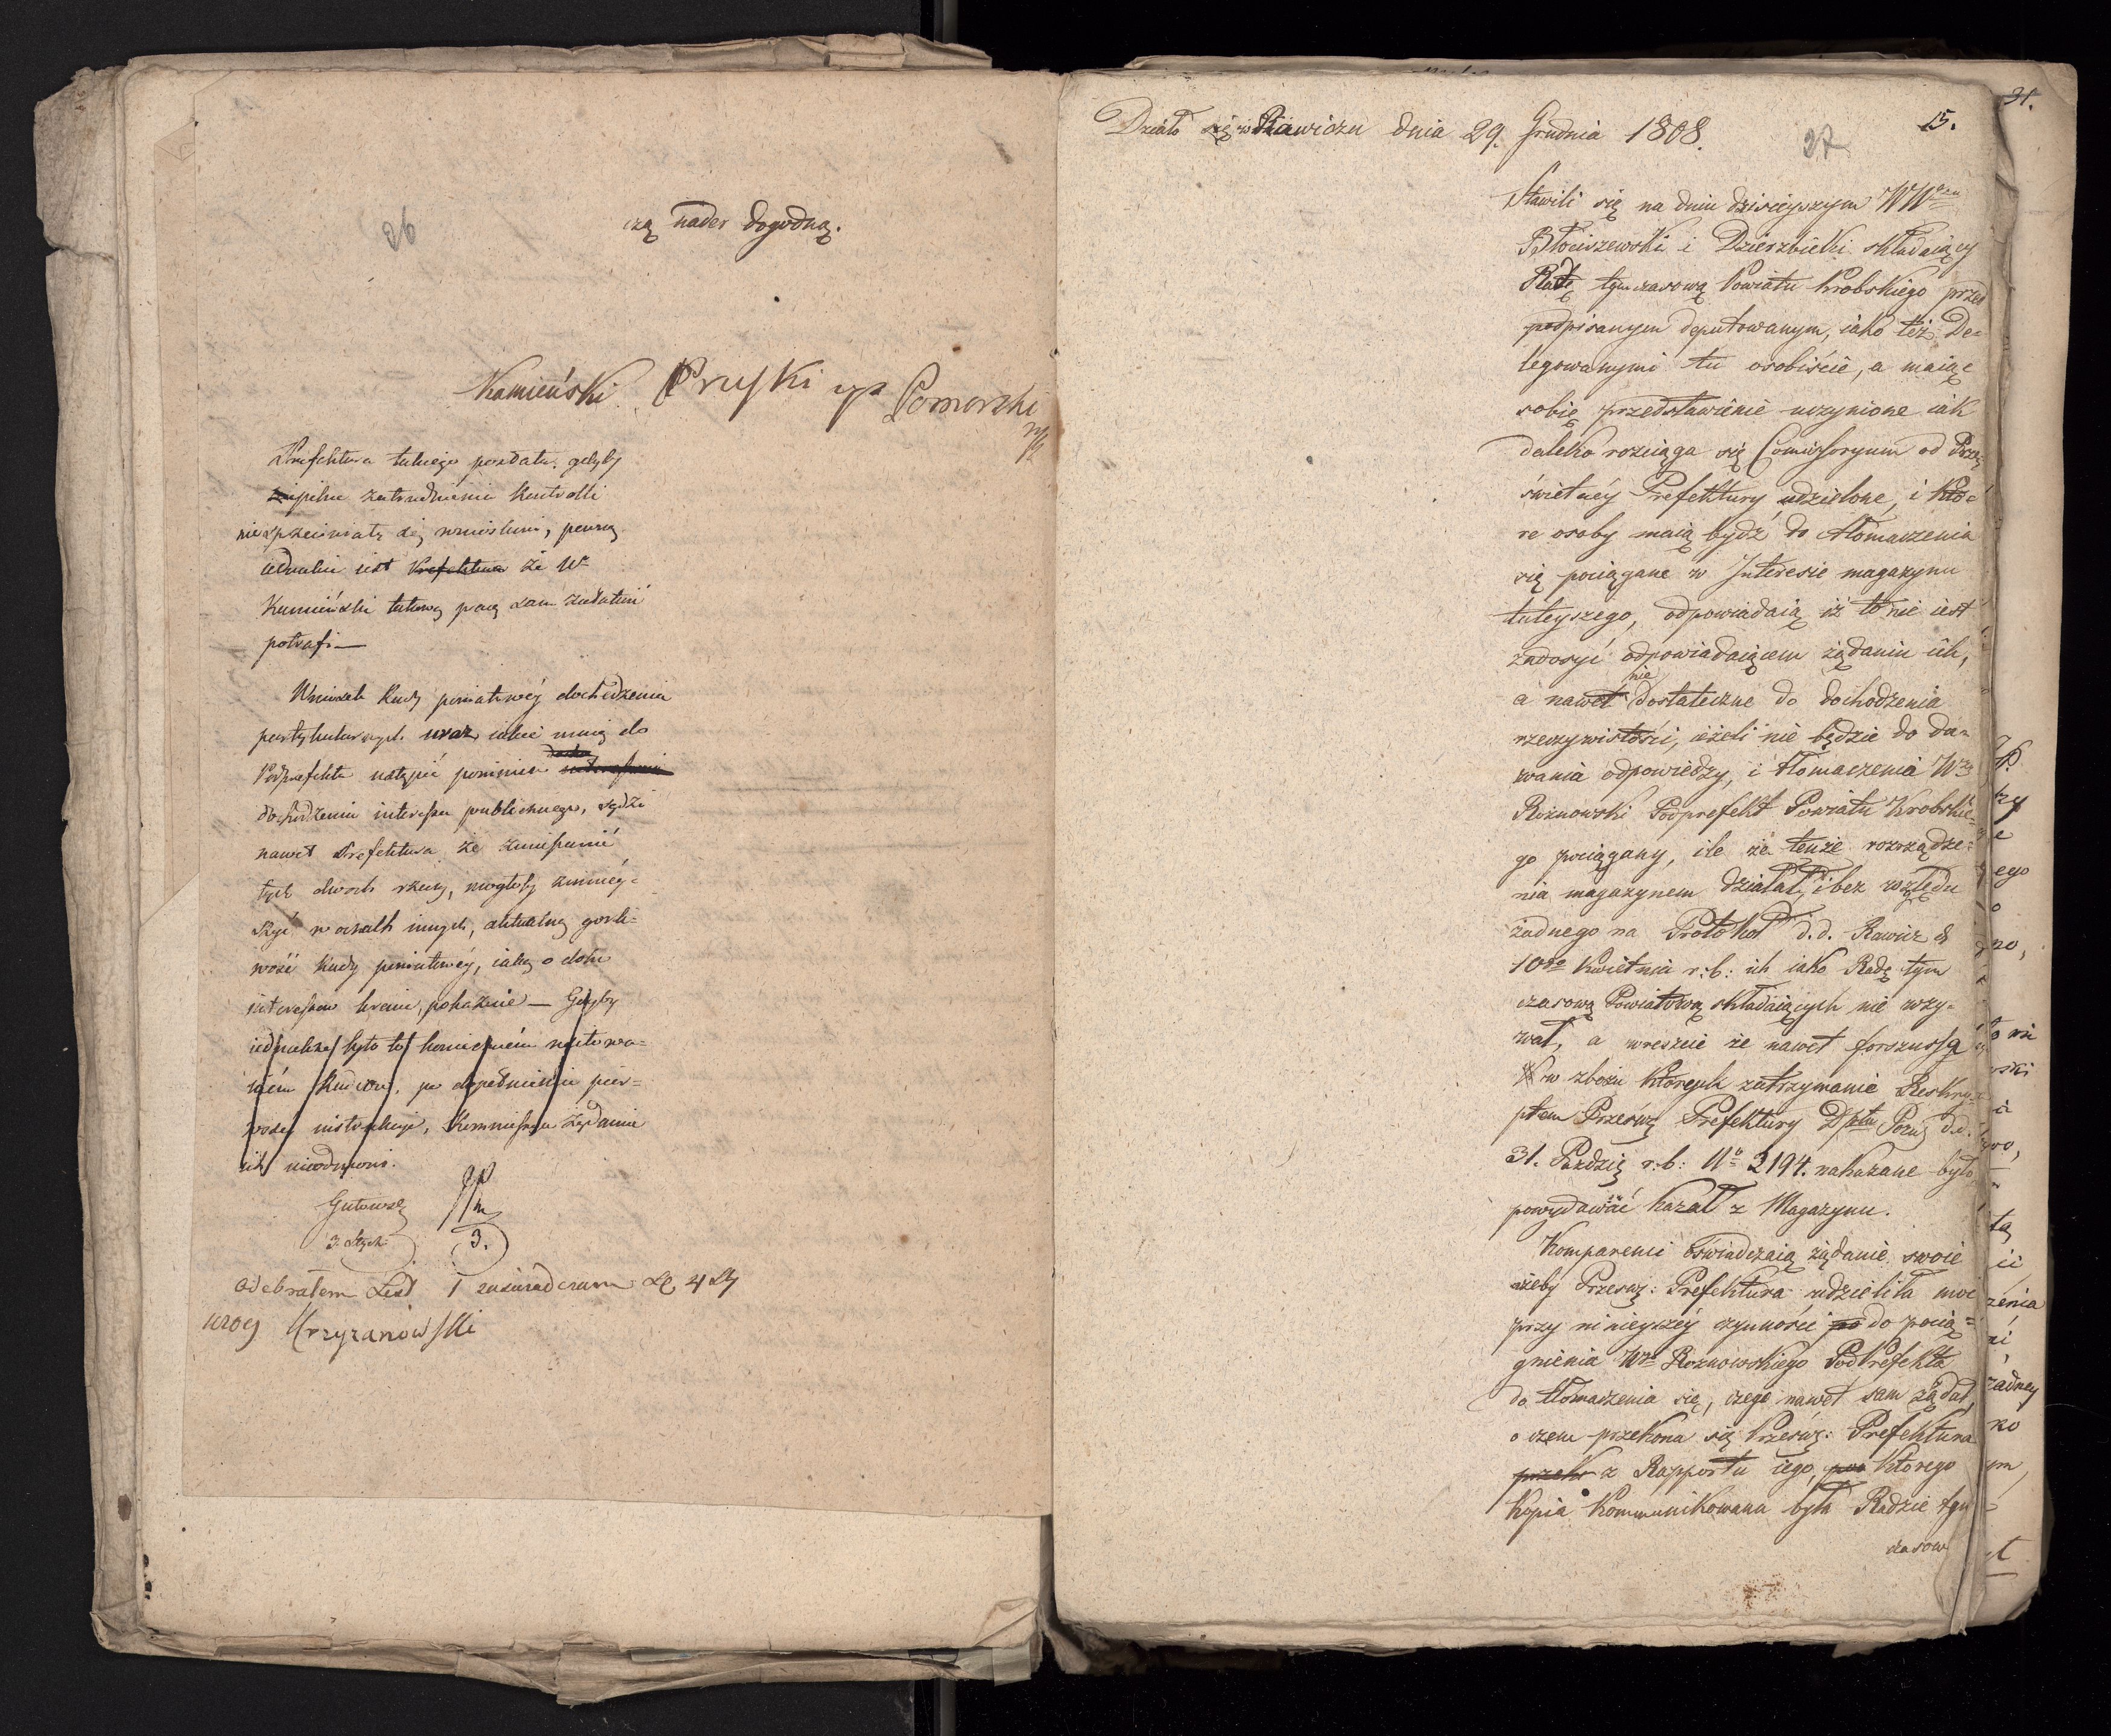 26
czą nader dogodną.
Kamieński Pruski mp Pomorski
mp
Prefektura takiego powodu, gdyby
pilne zatrudnienie Kontrolli
nie sprzeciwiało się wnioskowi, pewną
iednakże iest Prefektura że Wny
Kamieński takową pracę sam załatwić
potrafi —
Wniosek Rady powiatowéy dochodzenia
partykularnych uraz iakie maią do
Podprefekta ustąpić powinien
dochodzeniu interessu publicznego, sądzi
nawet Prefektura że zmieszanie
tych dwoch rzeczy, mogłoby zmniey=
szyć w oczach innych, aktualną gorli=
wość Rady powiatowey, iaką o dobro
interessow kraiu, pokazuie — Gdyby
iednakże było to koniecznem
po dopełnieniu pier=
wszey instrukcyi, Kommissya żądania
ich nieodmowi.
Gutowski
3. Stycz. 3.
Odebrałem List i zaświadczam d. 4 Sty
1809 Krzyzanowski
Działo się w Rawiczu dnia 29. Grudnia 1808. 15.
27
31.
Stawili się na dniu dzisieyszym WWni
Błociszewski i Dzierzbicki składaiący
Radę tymczasową Powiatu Krobskiego przed
podpisanym deputowanym, iako też De=
legowanymi tu osobiście, a maiąc
sobie przedstawienie uczynione iak
daleko rozciąga się Comissoryum od Prze=
świetnéy Prefektury udzielone, i któ=
re osoby maią bydź do tłomaczenia
się pociągane w Interesie magazynu
tuteyszego, odpowiadaią iż to nie iest
zadosyć odpowiadaiącem żądaniu ich,
a nawet nie dostateczne do dochodzenia
rzeczywistości, ieżeli nie będzie do da=
wania odpowiedzy, i tłomaczenia Wny
Rożnowski Podprefekt Powiatu Krobskie=
go pociągany, ile że tenże rozrządze=
nia magazynem działał, i bez względu
żadnego na Protokoł d.d. Rawicz d
10go Kwietnia r: b: ich iako Radę tym
czasową Powiatową składaiących nie wzy=
wał, a wreszcie że nawet forszussa
w zbożu których zatrzymanie Reskry=
ptem Prześw: Prefektury Dptu Pozn: d.d.
31. Pazdzie r: b: No 2194. nakazane było
powydawać kazał z Magazynu.
Komparenci oświadczaią żądanie swoie
ażeby Przesw: Prefektura udzieliła moc
przy ninieyszéy czynności po do pocią=
gnienia Wgo Rożnowskiego Podprefekta
do tłomaczenia się, czego nawet sam żądał,
o czem przekona się Przesw: Prefektura
przeko z Rapportu iego, ktorego
kopia kommunikowana była Radzie tym
czasow